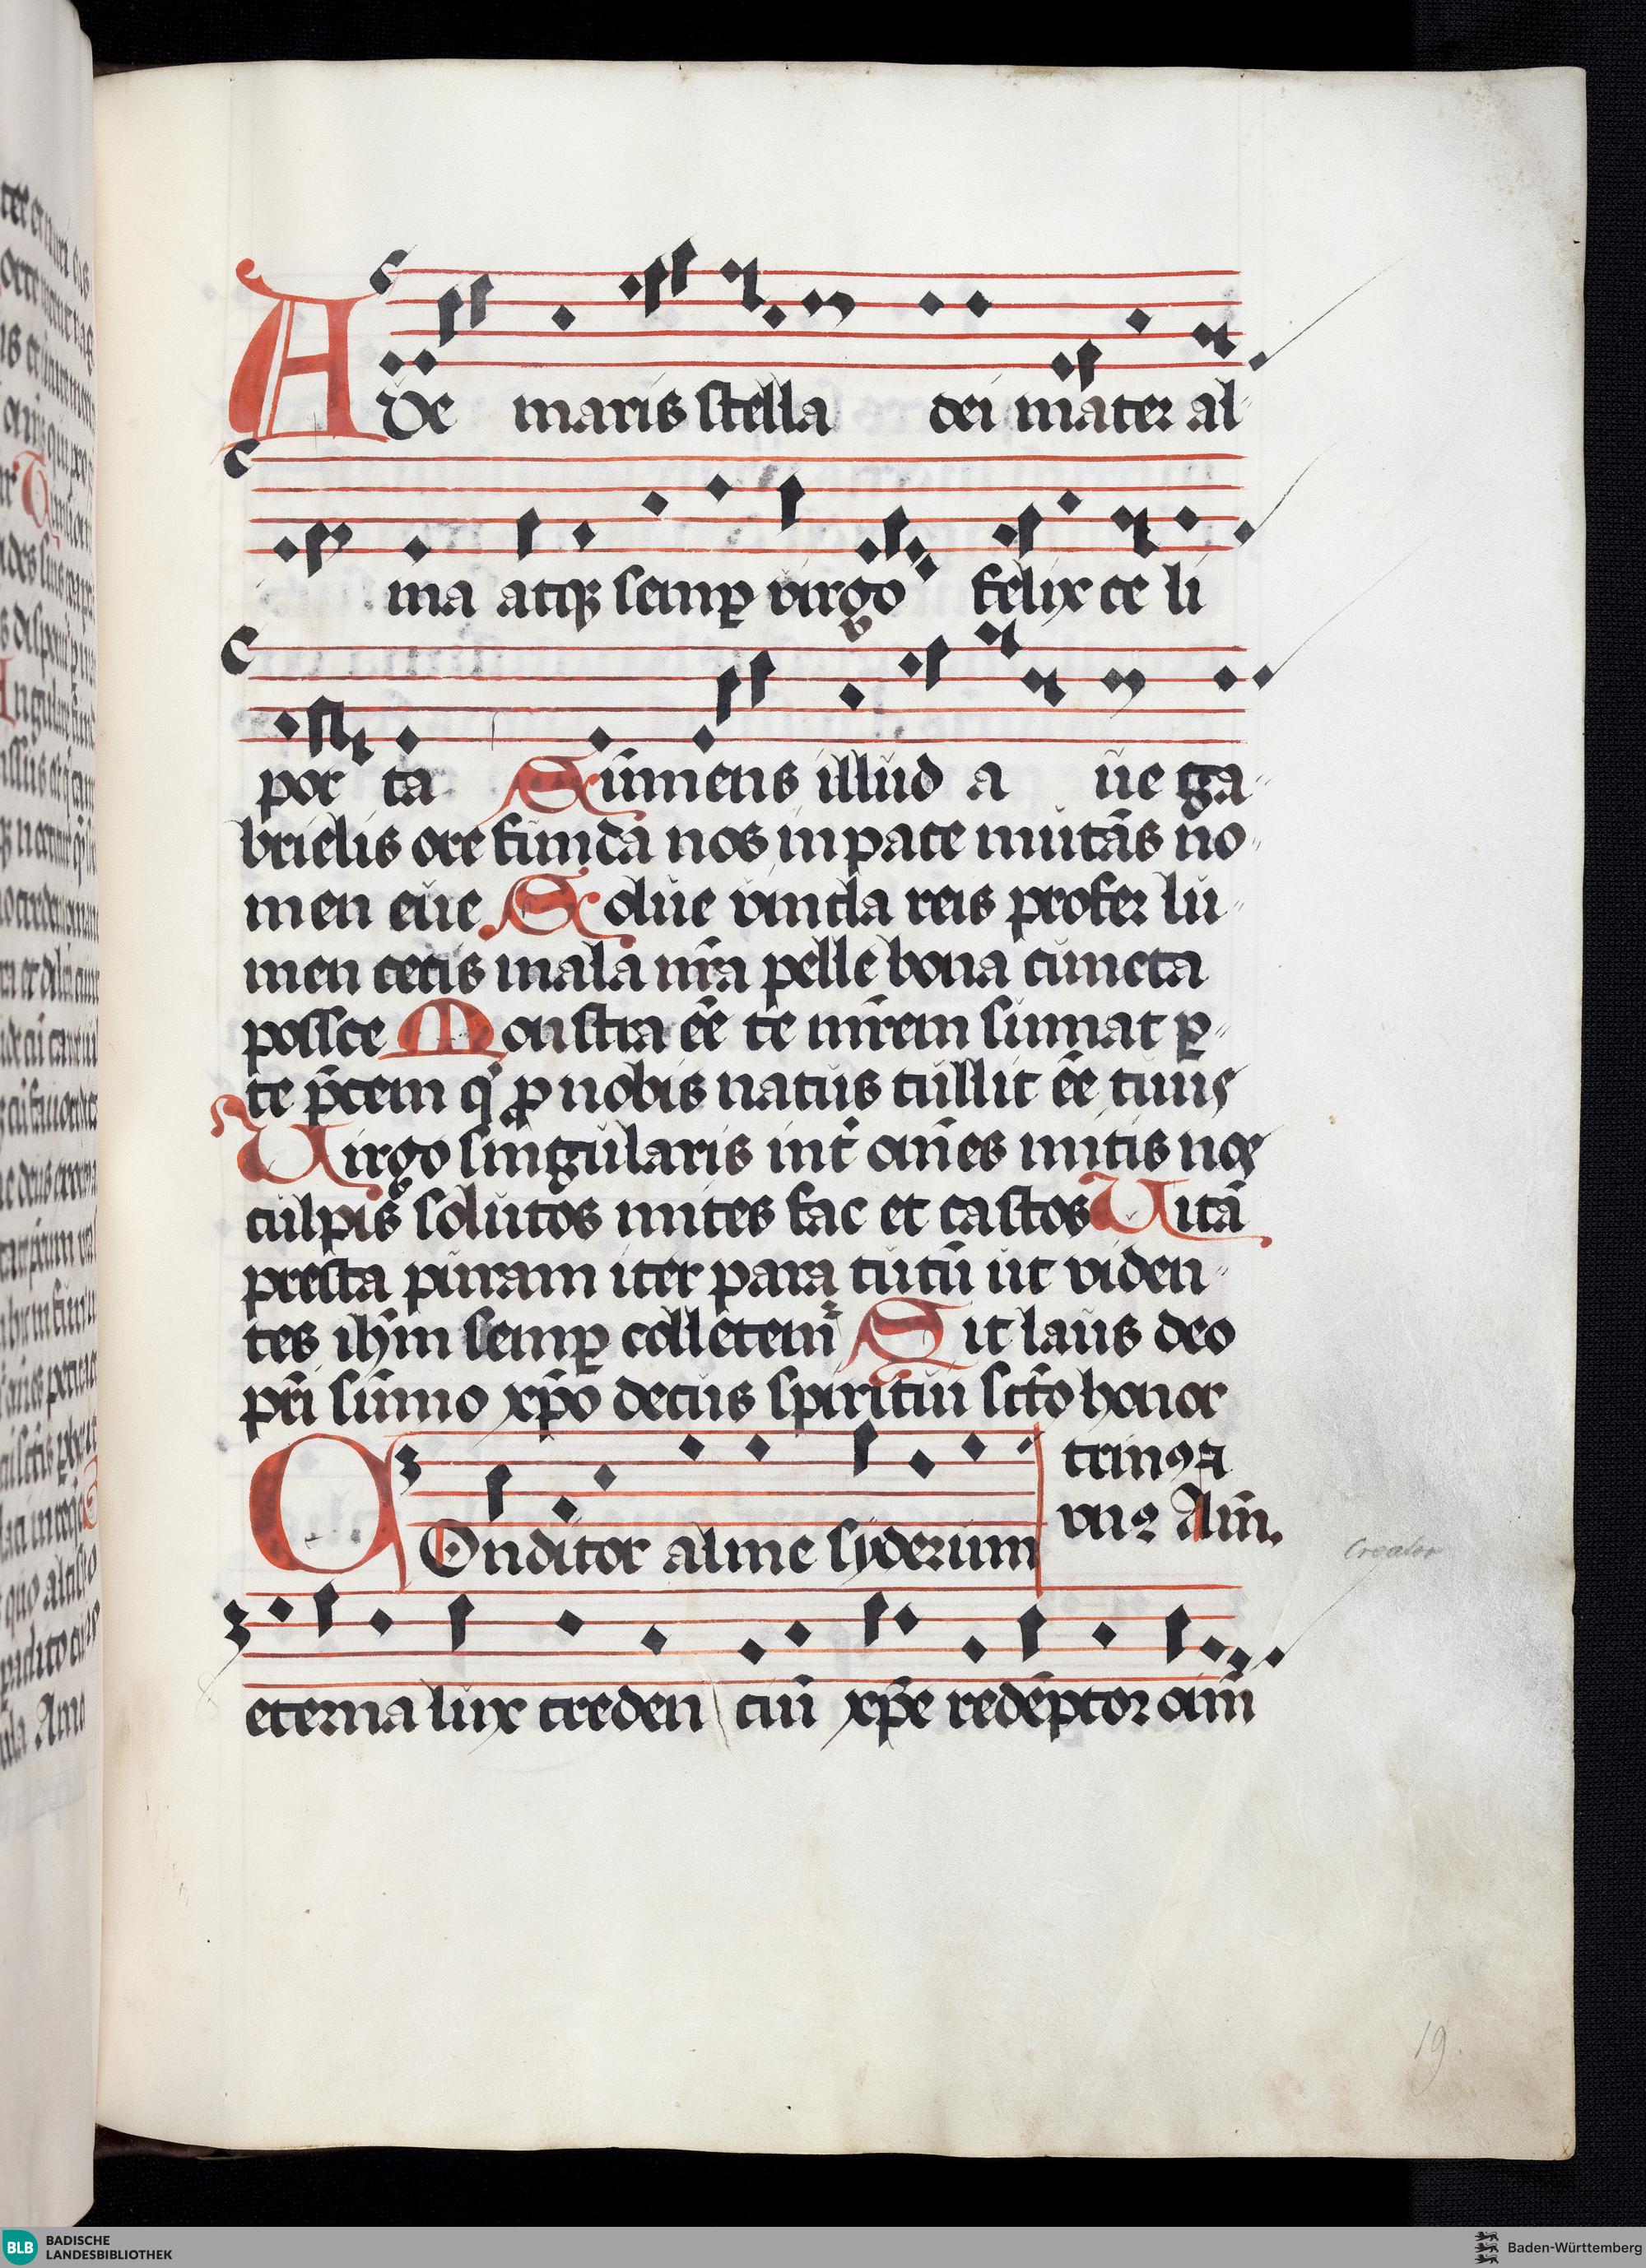 Aue maris stella dei mater al
ma atqꝫ semꝑ virgo felix celi
porta Sūmens illud a ue ga
brielis ore funda nos in pace mutās no
men eue Solue vincla reis profer lu
men cecis mala nr̄a pelle bona cuncta
possce Monstra eē te mr̄em sumat ꝑ
te p̄cem qͥ ꝓ nobis natus tulit eē tuus
Virgo singularis int̄ om̄es mitis nos
culpis solutos mites fac et castos Vitā
presta puram iter para tutū ut viden
tes ih̄m semꝑ colletemꝰ Sit laus deo
pr̄i sūmo xp̄o decus spiritui sc̄to honor
trinꝰ ⁊
vnꝰ Am̄.
COnditor alme syderum
eterna lux creden cium xp̄e redēptor om̄
Creator
19
BLB BADISCHE
LANDESBIBLIOTHEK
Baden-Württemberg